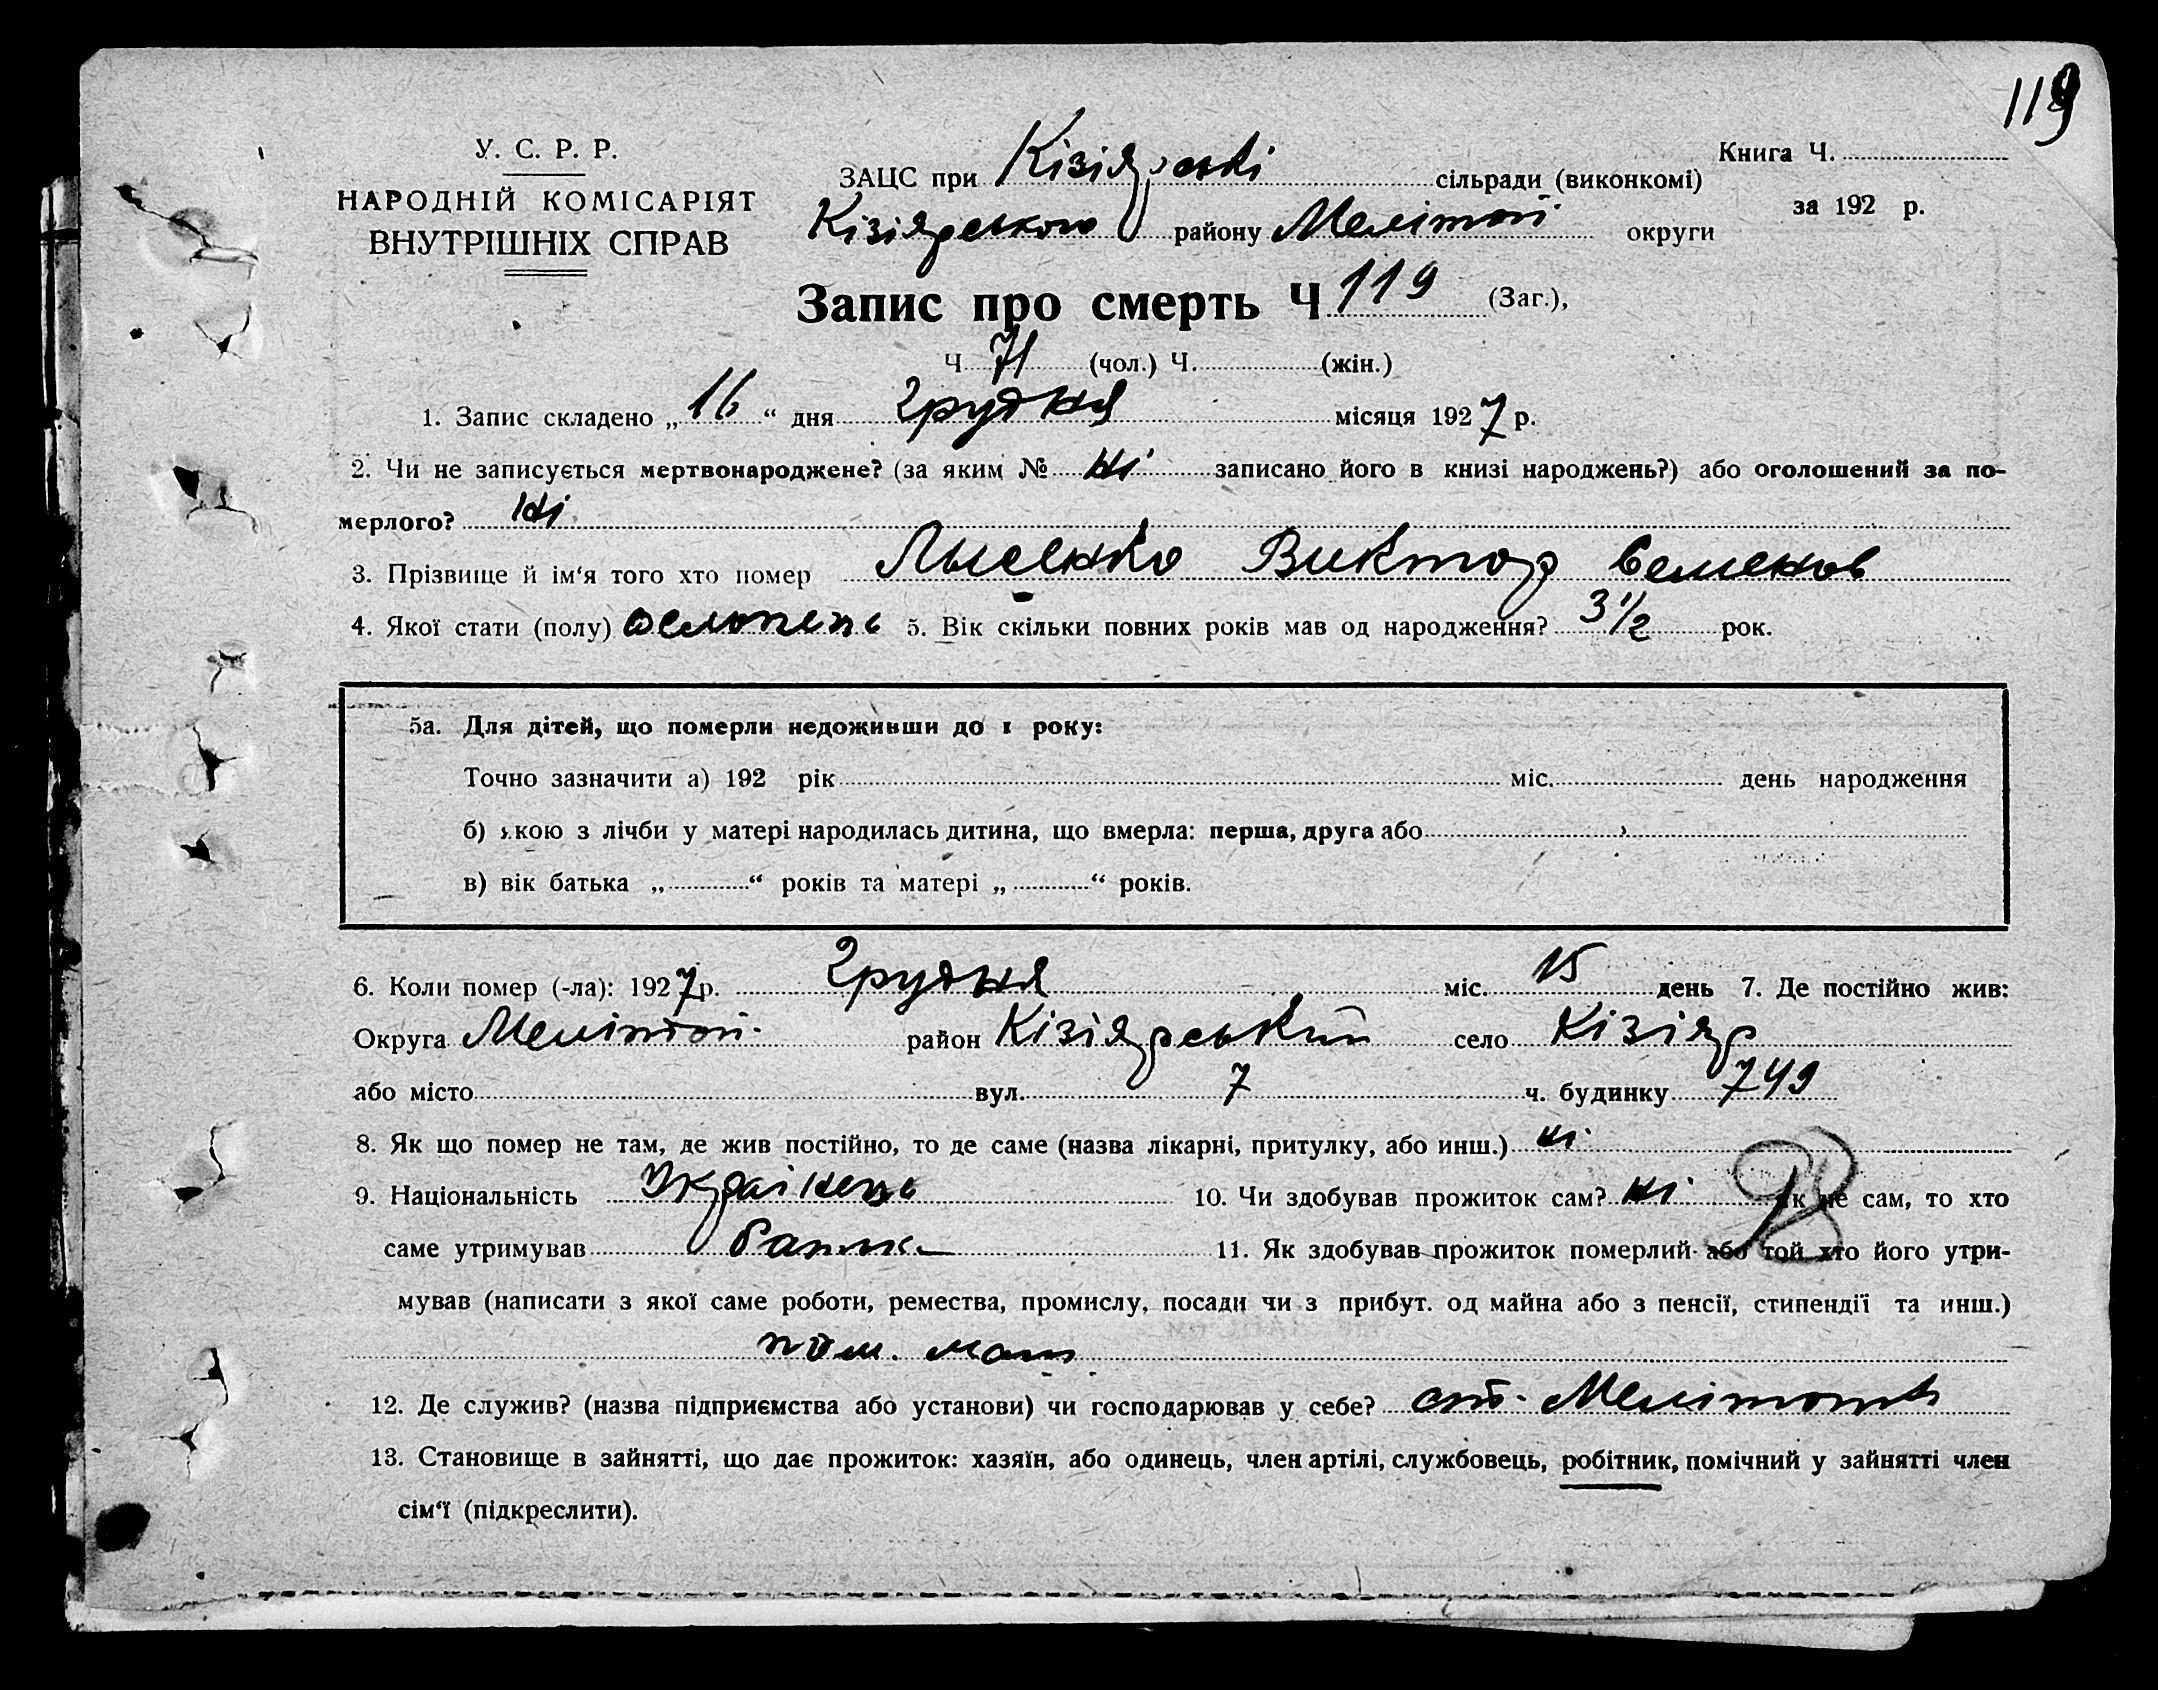 119
У. С. Р. Р.
НАРОДНІЙ КОМІСАРІЯТ
ВНУТРІШНІХ СПРАВ
Книга Ч.
за 192 р.
ЗАЦС при Кізіярські сільради (виконкомі)
Кізіярського району Мелітоп. округи
Запис про смерть Ч 119 (Заг.),
Ч 71 (чол.) Ч. (жін.)
1. Запис складено „ 16 “ дня Грудня місяця 1927 р.
2. Чи не записується мертвонароджене? (за яким № ні записано його в книзі народжень?) або оголошений за по-
мерлого? ні
3. Прізвище й ім‘я того хто помер Лысенко Виктор Семенов
4. Якої стати (полу) 5. Вік скільки повних років мав од народження? 3 1/2 рок.
5а. Для дітей, що померли недоживши до 1 року:
Точно зазначити а) 192 рік міс. день народження
б) якою з лічби у матері народилась дитина, що вмерла: перша, друга або
в) вік батька „ “ років та матері „ “ років.
6. Коли помер (-ла): 1927 р. Грудня міс. 15 день 7. Де постійно жив:
Округа Мелітоп. район Кізіярський село Кізіяр
або місто вул. 7 ч. будинку 749
8. Як що помер не там, де жив постійно, то де саме (назва лікарні, притулку, або инш.) ні
9. Національність Українець 10. Чи здобував прожиток сам? ні як не сам, то хто
саме утримував батько 11. Як здобував прожиток померлий або той хто його утри-
мував (написати з якої саме роботи, ремества, промислу, посади чи з прибут. од майна або з пенсії, стипендії та инш.)
пом. маш
12. Де служив? (назва підприємства або установи) чи господарював у себе? ст. Мелітополь
13. Становище в зайнятті, що дає прожиток: хазяїн, або одинець, член артілі, службовець, робітник, помічний у зайнятті член
сім‘ї (підкреслити).